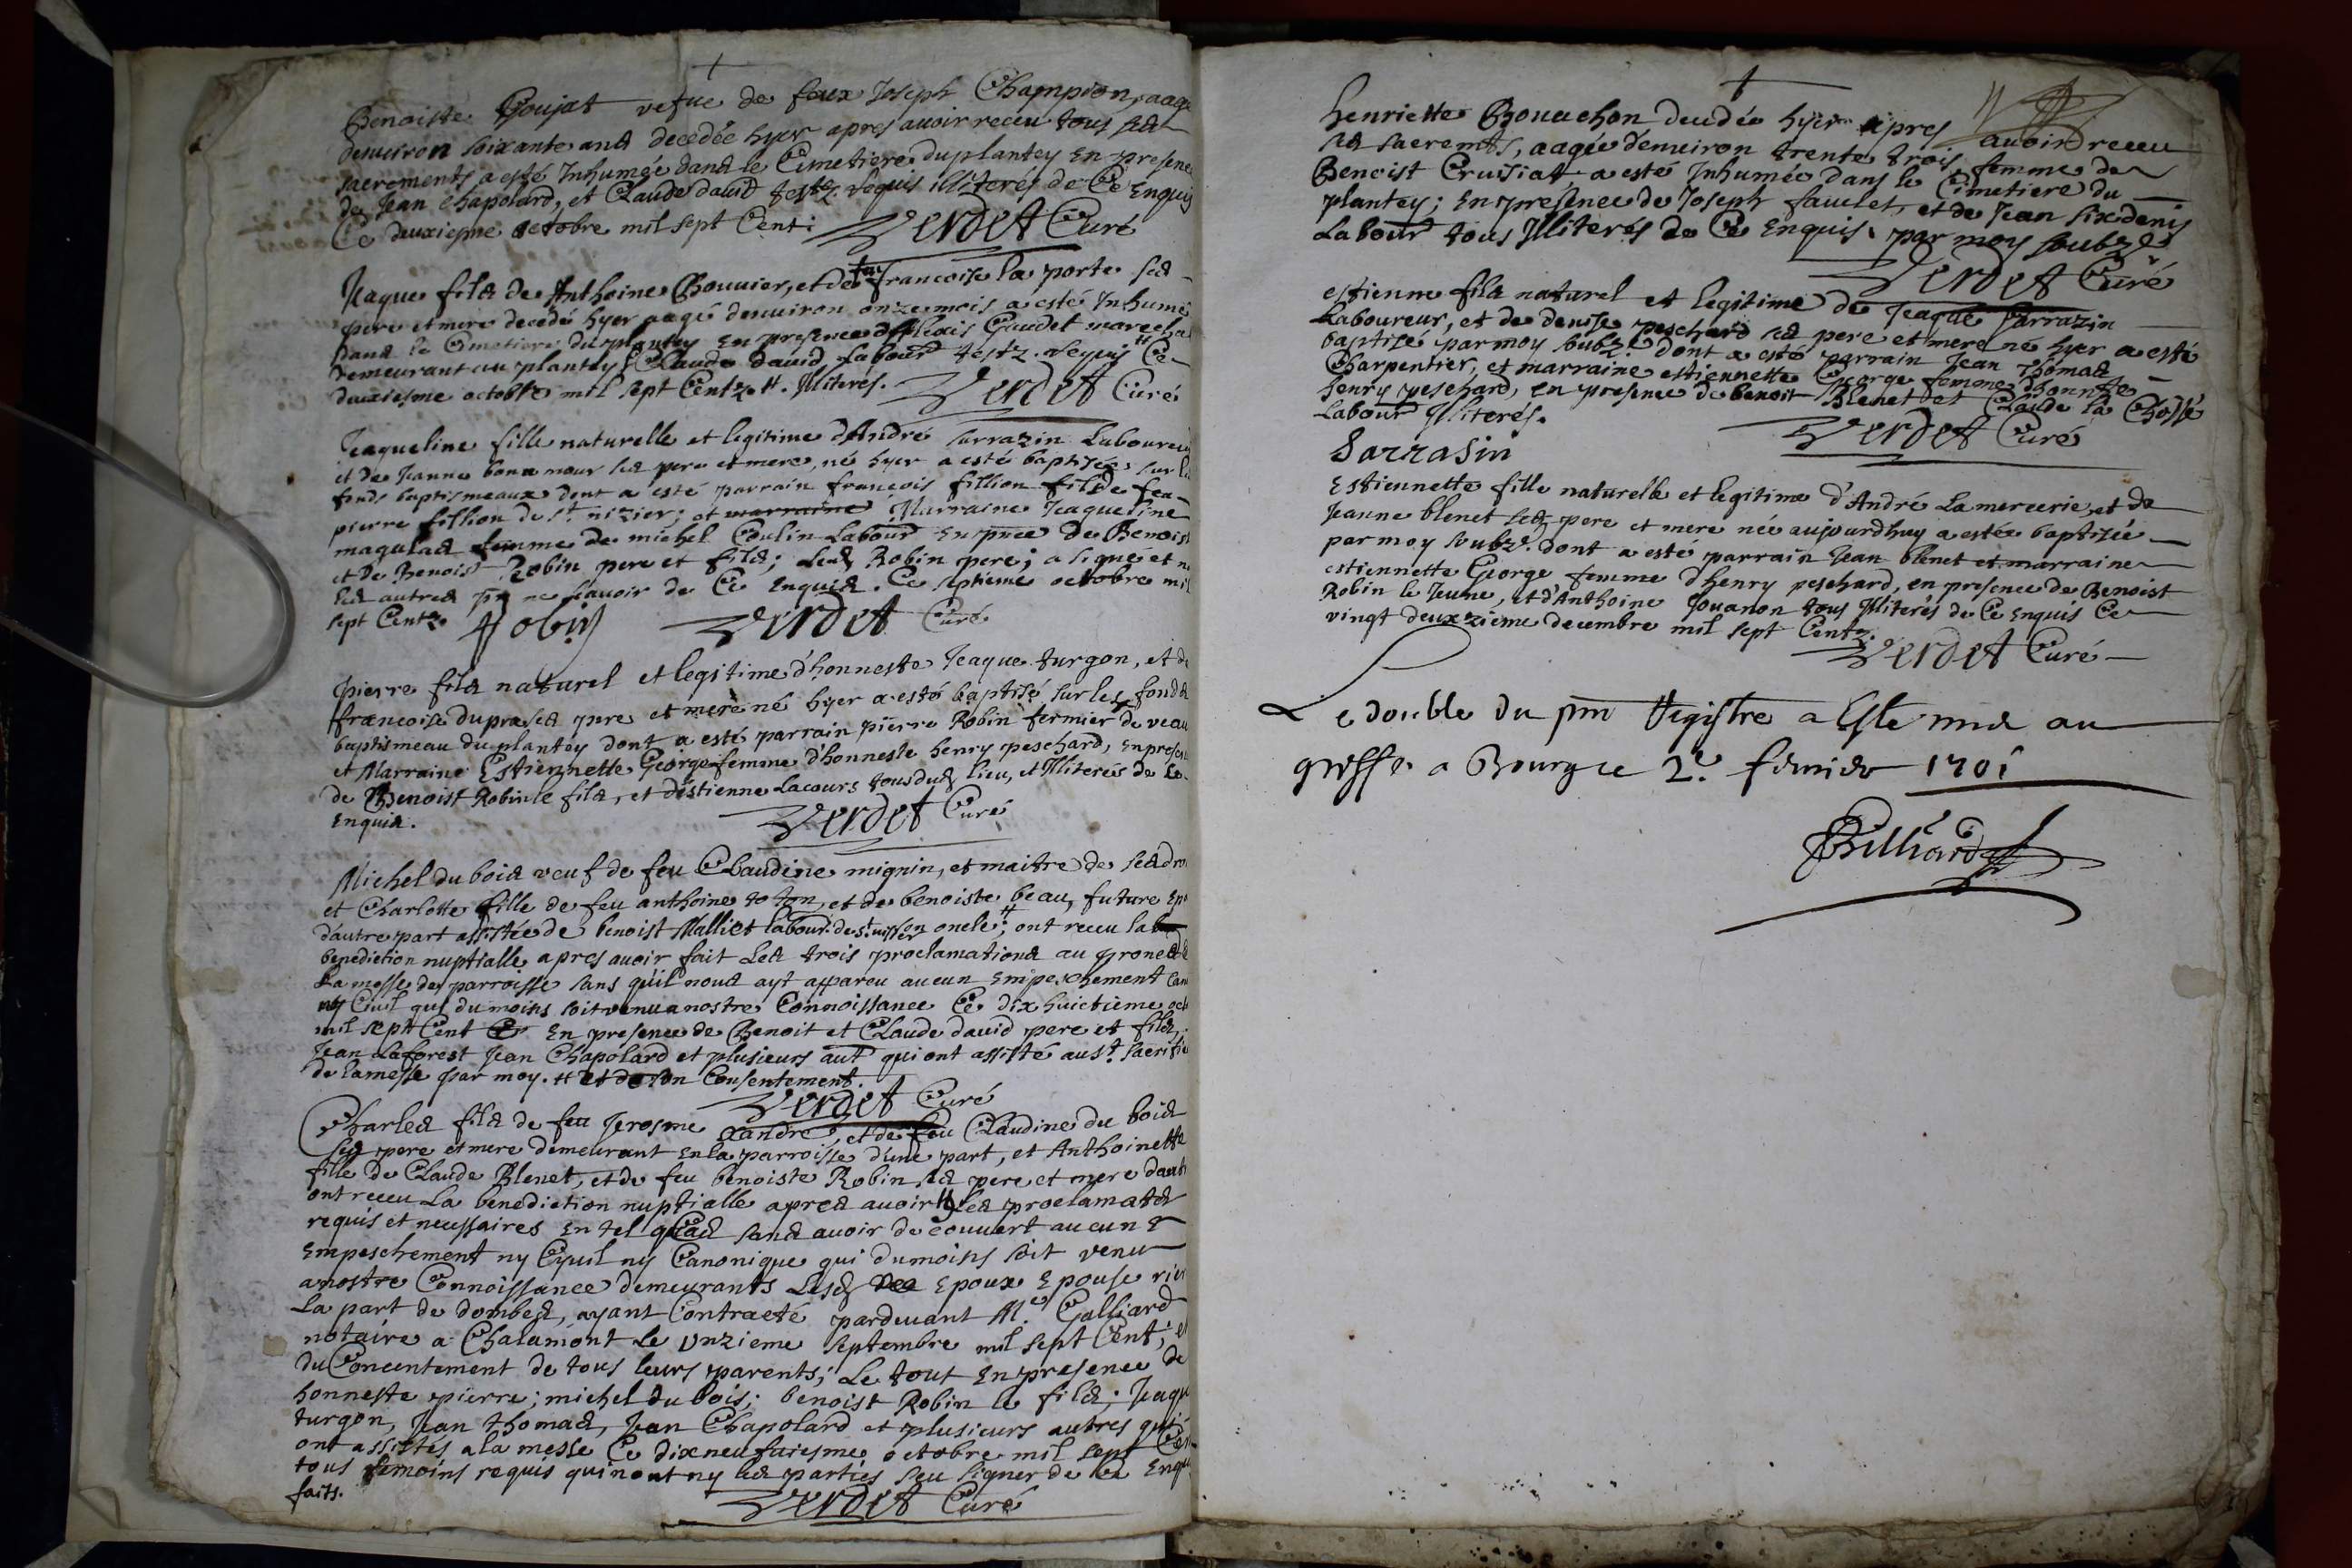 Benoiste Goujat vefue de feux Joseph Champion, aage
denuiron soixante ans decedée hyer apres auoir receu tous ses
sacrements a esté Inhumée dans le Cimetiere du plantey En presence
de Jean Chapolard, et Claude dauid testz. requis illiterés de Ce Enquis
Ce deuxiesme octobre mil sept Cent: Verdet Curé
Jeaque fils de Anthoine Bouuier, et de feu francoise la porte ses
pere et mere decedé hyer aagé denuiron onze mois a esté Inhumé
dans le Cimetiere du plantey En presence Gaudet marechal
demeurant au plantey Claude dauid Labour testz. requis Ce
deuxiesme octobre mil sept Centz. Illiteres. Verdet Curé
Jeaqueline fille naturelle et legitime d'André sarrazin Laboureur
et de Jeanne bonnamour ses pere et mere, né hyer a esté baptisée sur les
fonds baptismeaux dont a esté parrain francois fillion fils de feu
pierre fillion de st. nizier; et marraine Marraine Jeaqueline
magulas femme de michel Coulin Labour En pnce de Benoist
et de Benoist Robin pere et fils; Led. Robin pere; a signé et
les autres ne scauoir de Ce Enquis. Ce septieme octobre mil
sept Centz. Robin Verdet Curé
Pierre fils naturel et legitime d'honneste Jeaque turgon, et de
francoise dupras ses pere et mere né hyer a esté baptisé sur les fonds
baptismeau du plantey dont a esté parrain pierre Robin fermier de veau
et Marraine Estiennette George femme d'honneste henry peschard, En presence
de Benoist Robin le fils, et d'estienne Lacours tous dud. lieu, et Illiterés de Ce
Enquis. Verdet Curé
Michel du bois veuf de feu Claudine mignin, et maitre de ses droi
et Charlotte fille de feu anthoine toton, et de benoiste beau, future Epo
d'autre part assistée de benoist Malliet labour. de st. oncle; ont receu la
benediction nuptialle apres auoir fait Les trois proclamations au prone de
La messe de parroisse sans qu'il nous ayt apparu aucun Empeschement Can
ny Ciuil qui du moins soit venu a nostre Connoissance Ce dix huictieme oct
mil sept Cent En presence de Benoit et Claude dauid pere et fils,
Jean Laforest Jean Chapolard et plusieurs aut qui ont assisté au st. sacrifi
de la messe par moy. # et de son Consentement.
Verdet Curé
Charles fils de feu Jerosme xandre, et de feu Claudine du bois
ses pere et mere demeurant En la parroisse d'une part, et Anthoinette
fille de Claude Blenet, et de feu benoiste Robin ses pere et mere dautr
ont receu La benediction nuptialle apres auoir les proclamats
requis et necessaires En tel cas sans auoir decouuert aucuns
Empeschement ny Cyuil ny Canonique qui dumoins soit venu
a nostre Connoissance demeurants Lesd. Epoux Epouse rier
La part de dombes, ayant Contracté parduant Me. Galliard
notaire a Chalamont Le Vnzieme septembre mil sept Cent; et
du Concentement de tous leurs parents; Le tout En presence de
honneste pierre; michel du bois; benoist Robin le fils; Jeaque
turgon, Jean thomas, Jean Chapolard et plusieurs autres qui
ont assistés a la messe Ce dixneufuiesme octobre mil sept Cen
tous temoins requis qui nont ny les parties sceu signer de Ce Enqu
faits. Verdet Curé
henriette Bouuchon decedée hyer apres auoir receu
ses sacremts, aagée d'enuiron trente trois, femme de
Benoist Cruisiat a esté Inhumée dans le Cimetiere du
plantey; En presence de Joseph fauclet, et de Jean sixdenis
Labour tous Illiterés de Ce Enquis par moy soubz.
Verdet Curé
estienne fils naturel et legitime de Jeaque sarrazin
Laboureur, et de denise peschard ses pere et mere né hyer a esté
baptise par moy soubz. dont a esté parrain Jean Thomas
Charpentier, et marraine estiennette George femme dhonnte
henry peschard, en presence de benoit Blenet et Claude la Chosse
Labour Illiterés.
Verdet Curé
Sarrasin
Estiennette fille naturelle et legitime d'André Lamercerie, et de
Jeanne blenet ses pere et mere née aujourdhuy a estée baptisée
par moy soubz. dont a esté parrain Jean blenet et marraine
estiennette George femme d'henry peschard, en presence de Benoist
Robin le Jeune, et d'Anthoine Jouanon tous Illiterés de Ce Enquis Ce
vingt deuxzieme decembre mil sept Centz.
Verdet Curé
Le double du pnt Registre a Esté mis au
greffe a Bourg ce 2e. feurier 1701
Billiard